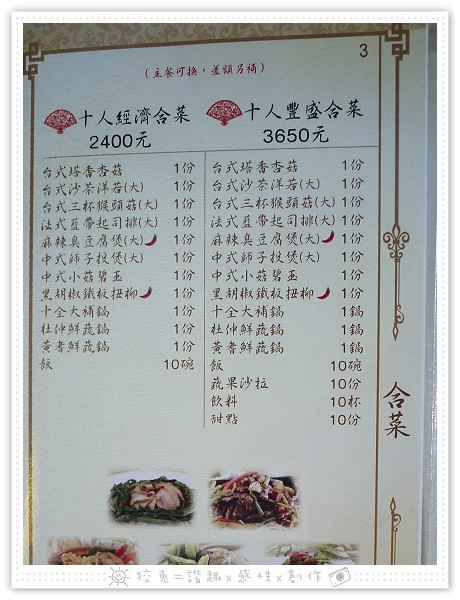 3
(主餐可換，差額另補)
十人經濟合菜
2400元
台式塔香杏菇 1份
台式沙茶洋若(大) 1份
台式三杯猴頭菇(大) 1份
法式藍帶起司排(大) 1份
麻辣臭豆腐煲(大) 1份
中式師子煲(大) 1份
中式小菇碧玉 1份
黑胡椒鐵板扭柳 1份
十全大補鍋 1份
杜仲鮮蔬鍋 1份
黃耆鮮蔬鍋 1份
飯 10碗
十人豐盛合菜
3650元
台式塔香杏菇 1份
台式沙茶洋若(大) 1份
台式三杯猴頭菇(大) 1份
法式藍帶起司排(大) 1份
麻辣臭豆腐煲(大) 1份
中式師子煲(大) 1份
中式小菇碧玉 1份
黑胡椒鐵板扭柳 1份
十全大補鍋 1鍋
杜仲鮮蔬鍋 1鍋
黃耆鮮蔬鍋 1鍋
飯 10碗
蔬果沙拉 10份
飲料 10杯
甜點 10份
合菜
狡兔=諧趣x感性x創作